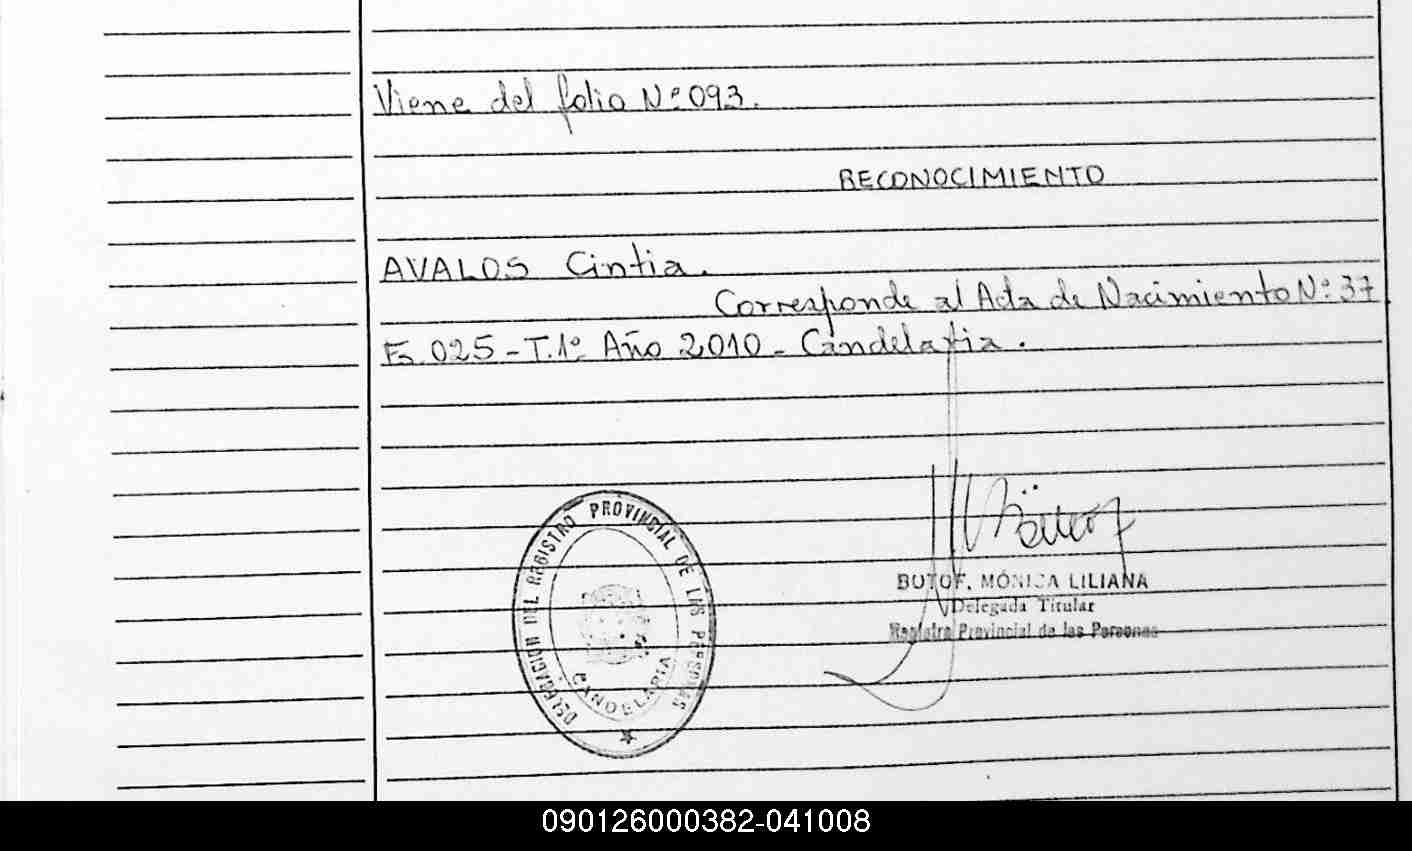 Viene del folio Nº 093.
RECONOCIMIENTO
AVALOS Cintia.
Corresponde al Acta de Nacimiento Nº 37
Fº 025 - T. 1º Año 2010 - Candelaria.
DELEGACION DEL REGISTRO PROVINCIAL DE LAS PERSONAS
CANDELARIA
BUTOF, MÓNICA LILIANA
Delegada Titular
Registro Provincial de las Personas
090126000382-041008